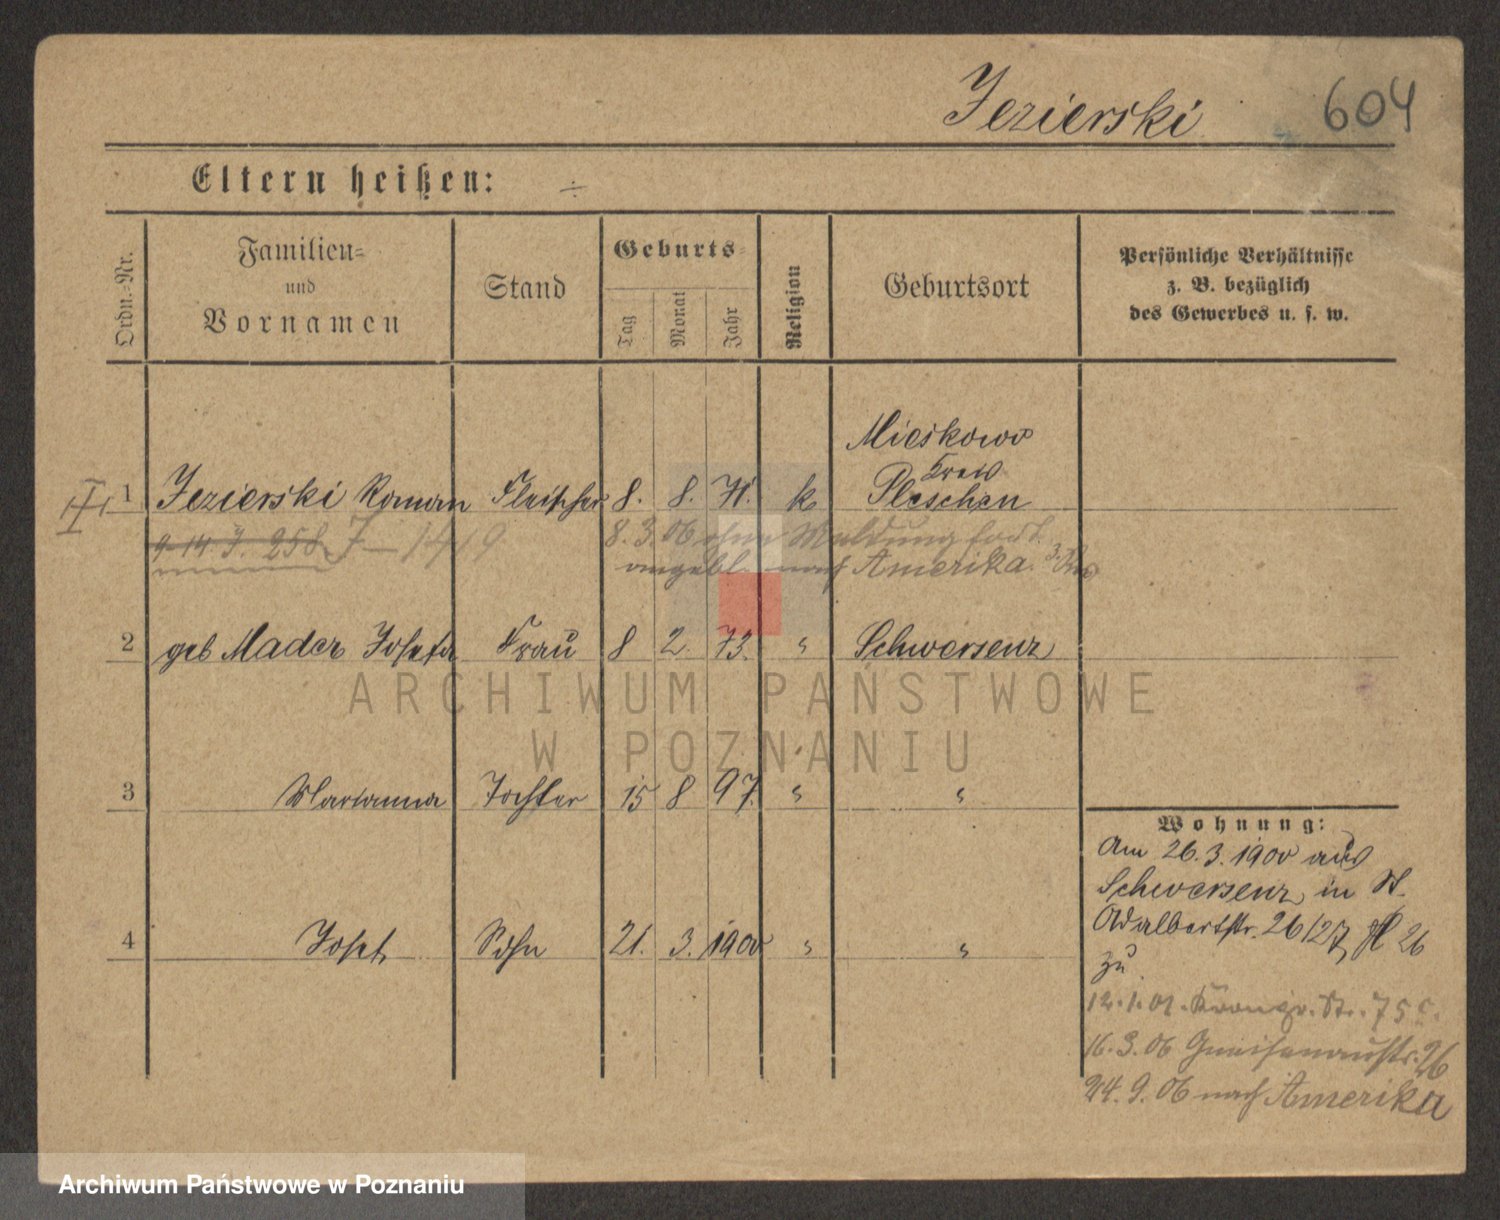 Jezierski 604
Eltern heißen: ÷
Ordn.-Nr.
Familien-
und
Vornamen
Stand
Geburts-
Tag
Monat
Jahr
Religion
Geburtsort
Persönliche Verhältnisse
z. B. bezüglich
des Gewerbes u. s. w.
Mieskowo
Kreis
1 Jezierski Roman Fleischer 8. 8. 71. k Pleschen
8.3.06 ohne Meldung fort.
angebl. nach Amerika.
2 geb Mader Josefa Frau 8 2. 73. " Schwersenz
ARCHIWUM PAŃSTWOWE
W POZNANIU
3 Marianna Tochter 15 8 97. " "
Wohnung:
Am 26.3.1900 aus
Schwersenz in St.
Adalbertstr. 26/27, H 26
4 Josef Sohn 21. 3. 1900 " "
zu
12.1.01. Str. 75
16.3.06 Gneisenaustr. 26
24.9.06 nach Amerika
Archiwum Państwowe w Poznaniu